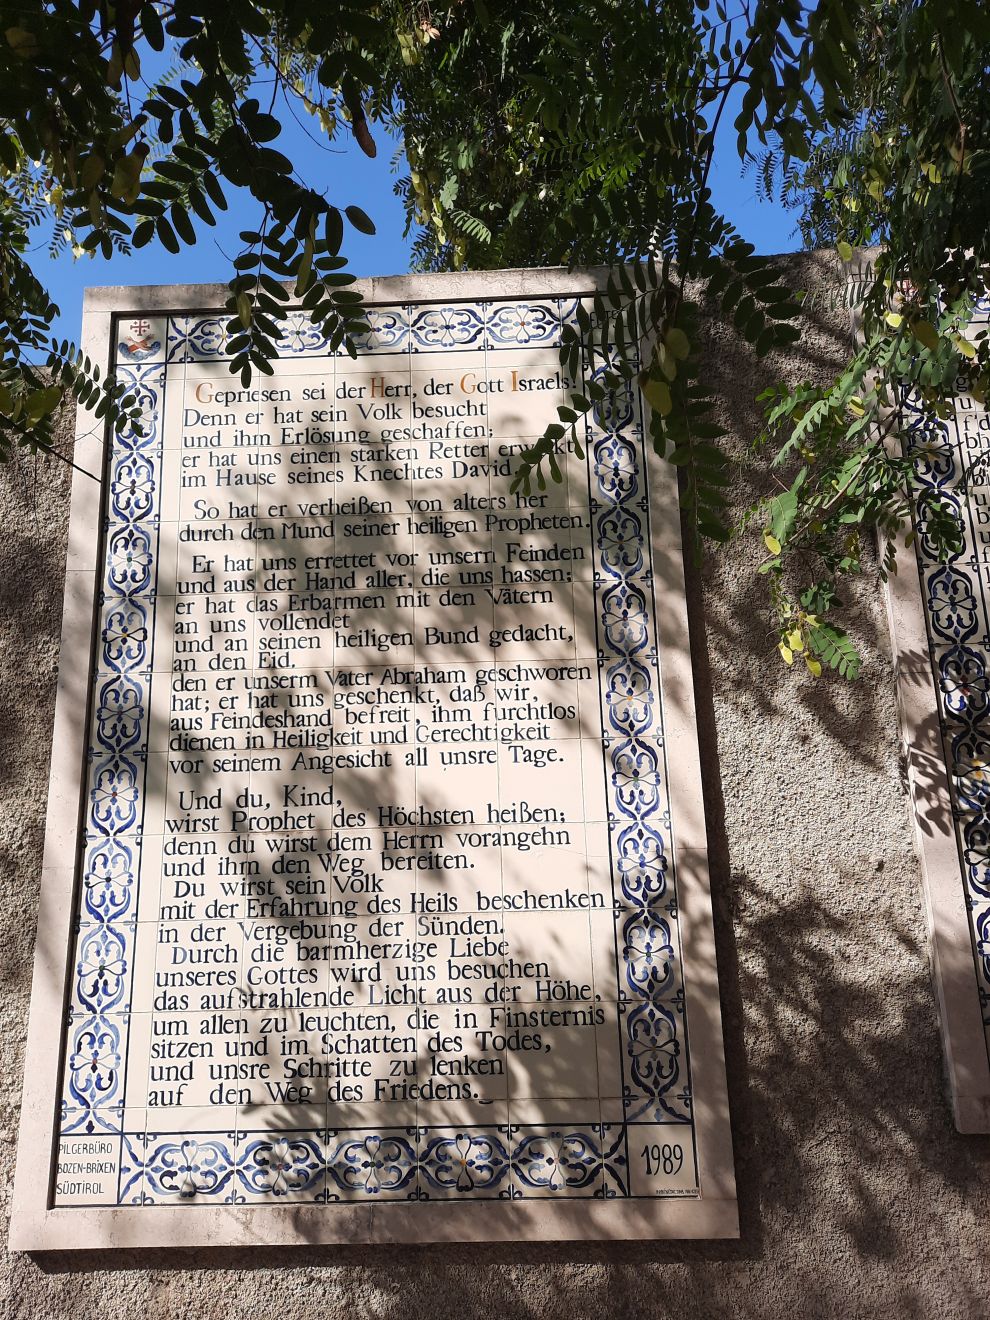 Gepriesen sei der Herr, der Gott Israels!
Denn er hat sein Volk besucht
und ihm Erlösung geschaffen;
er hat uns einen starken Retter erweckt
im Hause seines Knechtes David.
So hat er verheißen von alters her
durch den Mund seiner heiligen Propheten.
Er hat uns errettet vor unsern Feinden
und aus der Hand aller, die uns hassen;
er hat das Erbarmen mit den Vätern
an uns vollendet
und an seinen heiligen Bund gedacht,
an den Eid.
den er unserm Vater Abraham geschworen
hat; er hat uns geschenkt, daß wir,
aus Feindeshand befreit, ihm furchtlos
dienen in Heiligkeit und Gerechtigkeit
vor seinem Angesicht all unsre Tage.
Und du, Kind,
wirst Prophet des Höchsten heißen;
denn du wirst dem Herrn vorangehn
und ihm den Weg bereiten.
Du wirst sein Volk
mit der Erfahrung des Heils beschenken
in der Vergebung der Sünden.
Durch die barmherzige Liebe
unseres Gottes wird uns besuchen
das aufstrahlende Licht aus der Höhe,
um allen zu leuchten, die in Finsternis
sitzen und im Schatten des Todes,
und unsre Schritte zu lenken
auf den Weg des Friedens.
PILGERBÜRO
BOZEN-BRIXEN
SÜDTIROL
1989